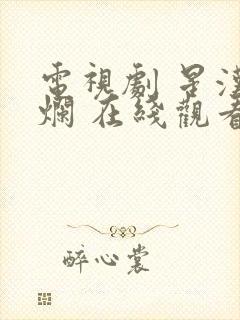 電視劇 星
爛 在綫觀看
醉心裳